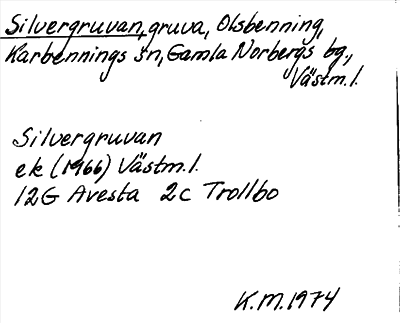 Silvergruvan, gruva, Olsbenning,
Karbennings sn, Gamla Norbergs bg.,
Västm.l.
Silvergruvan
ek (1966) Västm.l.
12G Avesta 2c Trollbo
K.M. 1974